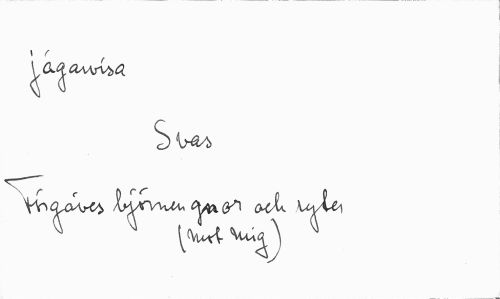 jágarvisa
Svas
Förgáves björnen gnor och ryter
(mot mig)